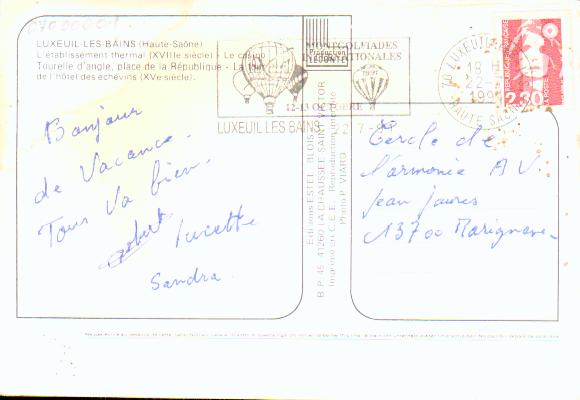 LUXEUIL-LES-BAINS (Haute-Saône)
L'établissement thermal (XVIIIe siècle) - Le casino
Tourelle d'angle, place de la République - La
de l'hôtel des échevins (XVe siècle).
Production
LECONTE
MONTGOLFIADES
INTERNATIONALES
1991
12-13 OCTOBRE
LUXEUIL LES BAINS
22-7-
70 LUXEUIL
18 H
22-7
199
HAUTE SAONE
REPUBLIQUE FRANÇAISE
LA POSTE
2,30
Bonjour
de Vacance.
Tous Va bien.
Robert
Lucette
Sandra
Editions ESTEL - BLOIS
B.P. 45 41260 LA CHAUSSEE SAINT-VICTOR
Imprimé en C.E.E. Reproduction interdite
Photo P. VIARD
Cercle de
l'armonie A V
Jean jaures
13700 Marignane